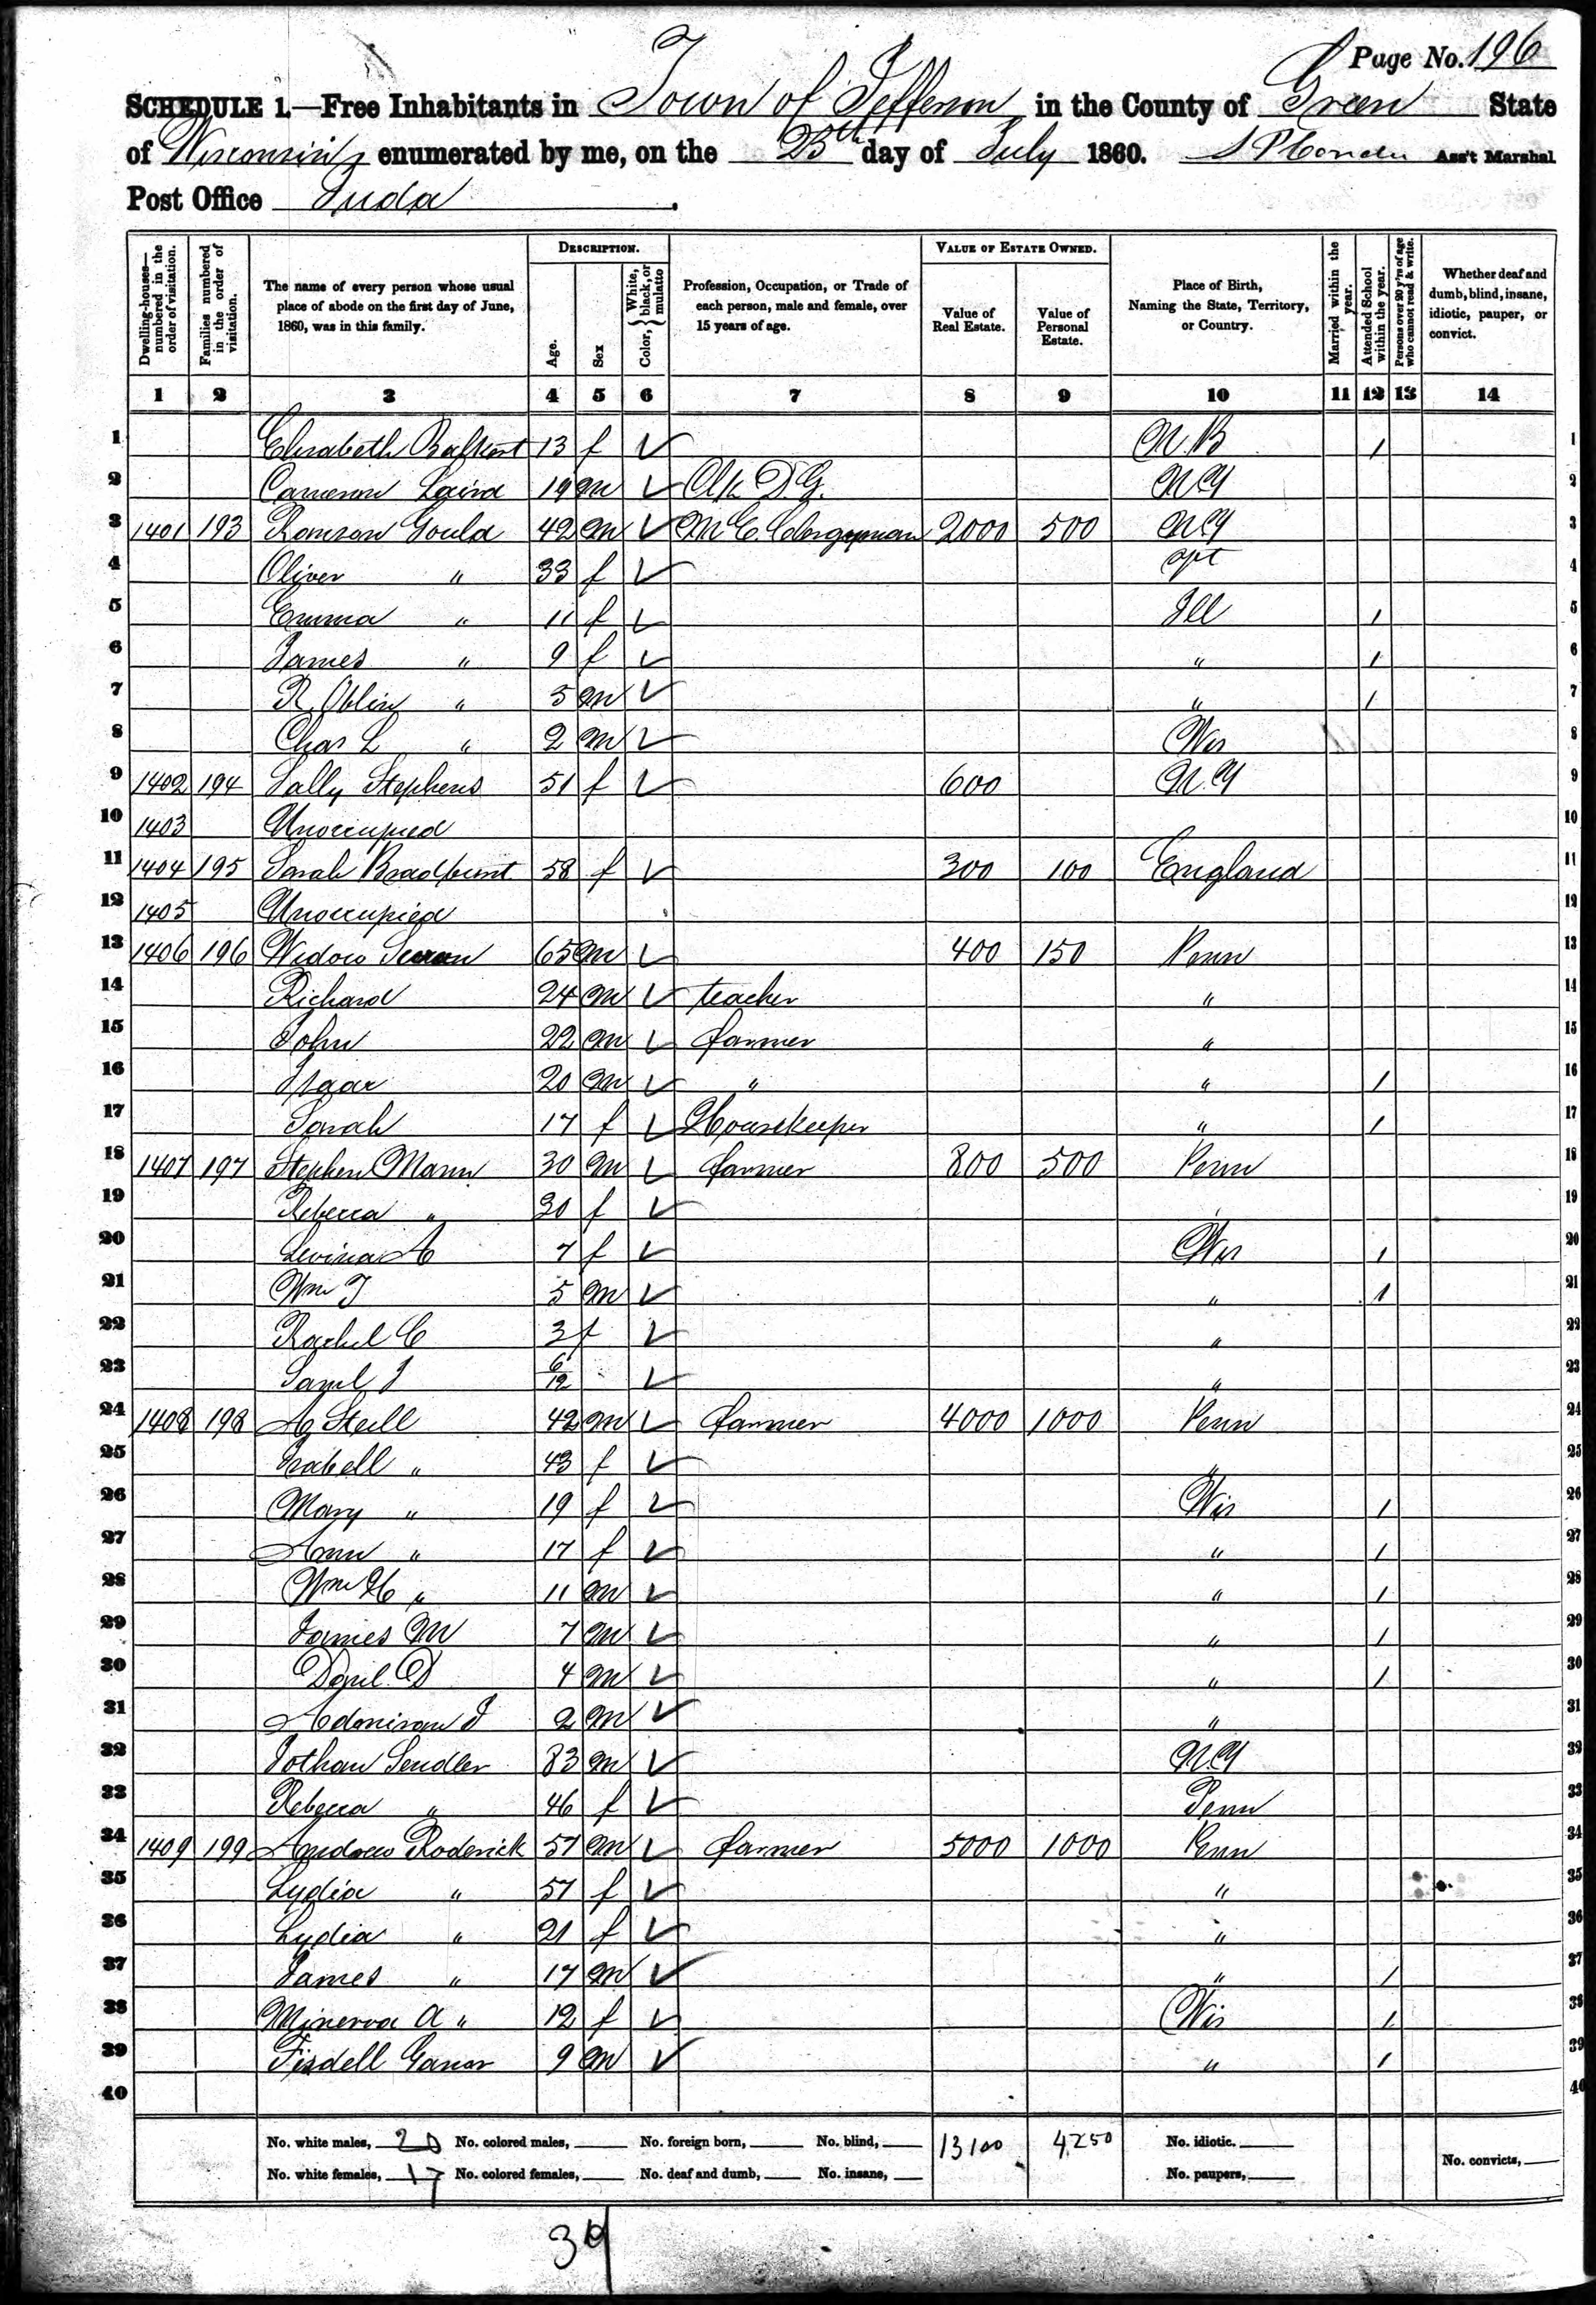 Page No. 196
SCHEDULE 1.—Free Inhabitants in Town of Jefferson in the County of Green State
of Wisconsin enumerated by me, on the 25th day of July 1860. Ass't Marshal
Post Office Juda.
Dwelling-houses—numbered in the order of visitation.
Families numbered in the order of visitation.
The name of every person whose usual place of abode on the first day of June, 1860, was in this family.
DESCRIPTION.
Age.
Sex
Color, { White, black, or mulatto
Profession, Occupation, or Trade of each person, male and female, over 15 years of age.
VALUE OF ESTATE OWNED.
Value of Real Estate.
Value of Personal Estate.
Place of Birth, Naming the State, Territory, or Country.
Married within the year.
Attended School within the year.
Persons over 20 y'rs of age who cannot read & write.
Whether deaf and dumb, blind, insane, idiotic, pauper, or convict.
1 2 3 4 5 6 7 8 9 10 11 12 13 14
1 Elisabeth 13 f ✓ N.B 1 1
2 Cameron Laird 19 m ✓ Clk D.G. N Y 2
3 1401 193 Ranson Gould 42 m ✓ M E Clergyman 2000 500 N Y 3
4 Oliver " 33 f ✓ 4
5 Emma " 11 f ✓ Ill 1 5
6 James " 9 f ✓ " 1 6
7 R. Oblin " 5 m ✓ " 1 7
8 Chas L " 2 m ✓ Wis 8
9 1402 194 Sally Stephens 51 f ✓ 600 N.Y 9
10 1403 Unoccupied 10
11 1404 195 Sarah 58 f ✓ 300 100 England 11
12 1405 Unoccupied 12
13 1406 196 Widow 65 m ✓ 400 150 Penn 13
14 Richard 24 m ✓ teacher " 14
15 John 22 m ✓ farmer " 15
16 Isaac 20 m ✓ " " 1 16
17 Sarah 17 f ✓ Housekeeper " 1 17
18 1407 197 Stephen Mann 30 m ✓ farmer 800 500 Penn 18
19 Rebecca " 30 f ✓ 19
20 Levina A 7 f ✓ Wis 1 20
21 Wm J 5 m ✓ " 1 21
22 Rachel C 3 f ✓ " 22
23 Saml J 6/12 ✓ " 23
24 1408 198 A Steell 42 m ✓ farmer 4000 1000 Penn 24
25 Isabell " 43 f ✓ " 25
26 Mary " 19 f ✓ Wis 1 26
27 Ann " 17 f ✓ " 1 27
28 Wm H " 11 m ✓ " 1 28
29 James M 7 m ✓ " 1 29
30 D 4 m ✓ " 1 30
31 Adoniram J 2 m ✓ " 31
32 Jothan Sendler 83 m ✓ N.Y 32
33 Rebecca " 46 f ✓ Penn 33
34 1409 199 Andrew Roderick 57 m ✓ farmer 5000 1000 Penn 34
35 Lydia " 57 f ✓ " 35
36 Lydia " 21 f ✓ " 36
37 James " 17 m ✓ " 1 37
38 Minerva A " 12 f ✓ Wis 1 38
39 Tisdell 9 m ✓ " 1 39
40 40
No. white males, 20 No. colored males, No. foreign born, No. blind, 13100 4250 No. idiotic.
No. white females, 17 No. colored females, No. deaf and dumb, No. insane, No. paupers, No. convicts,
39